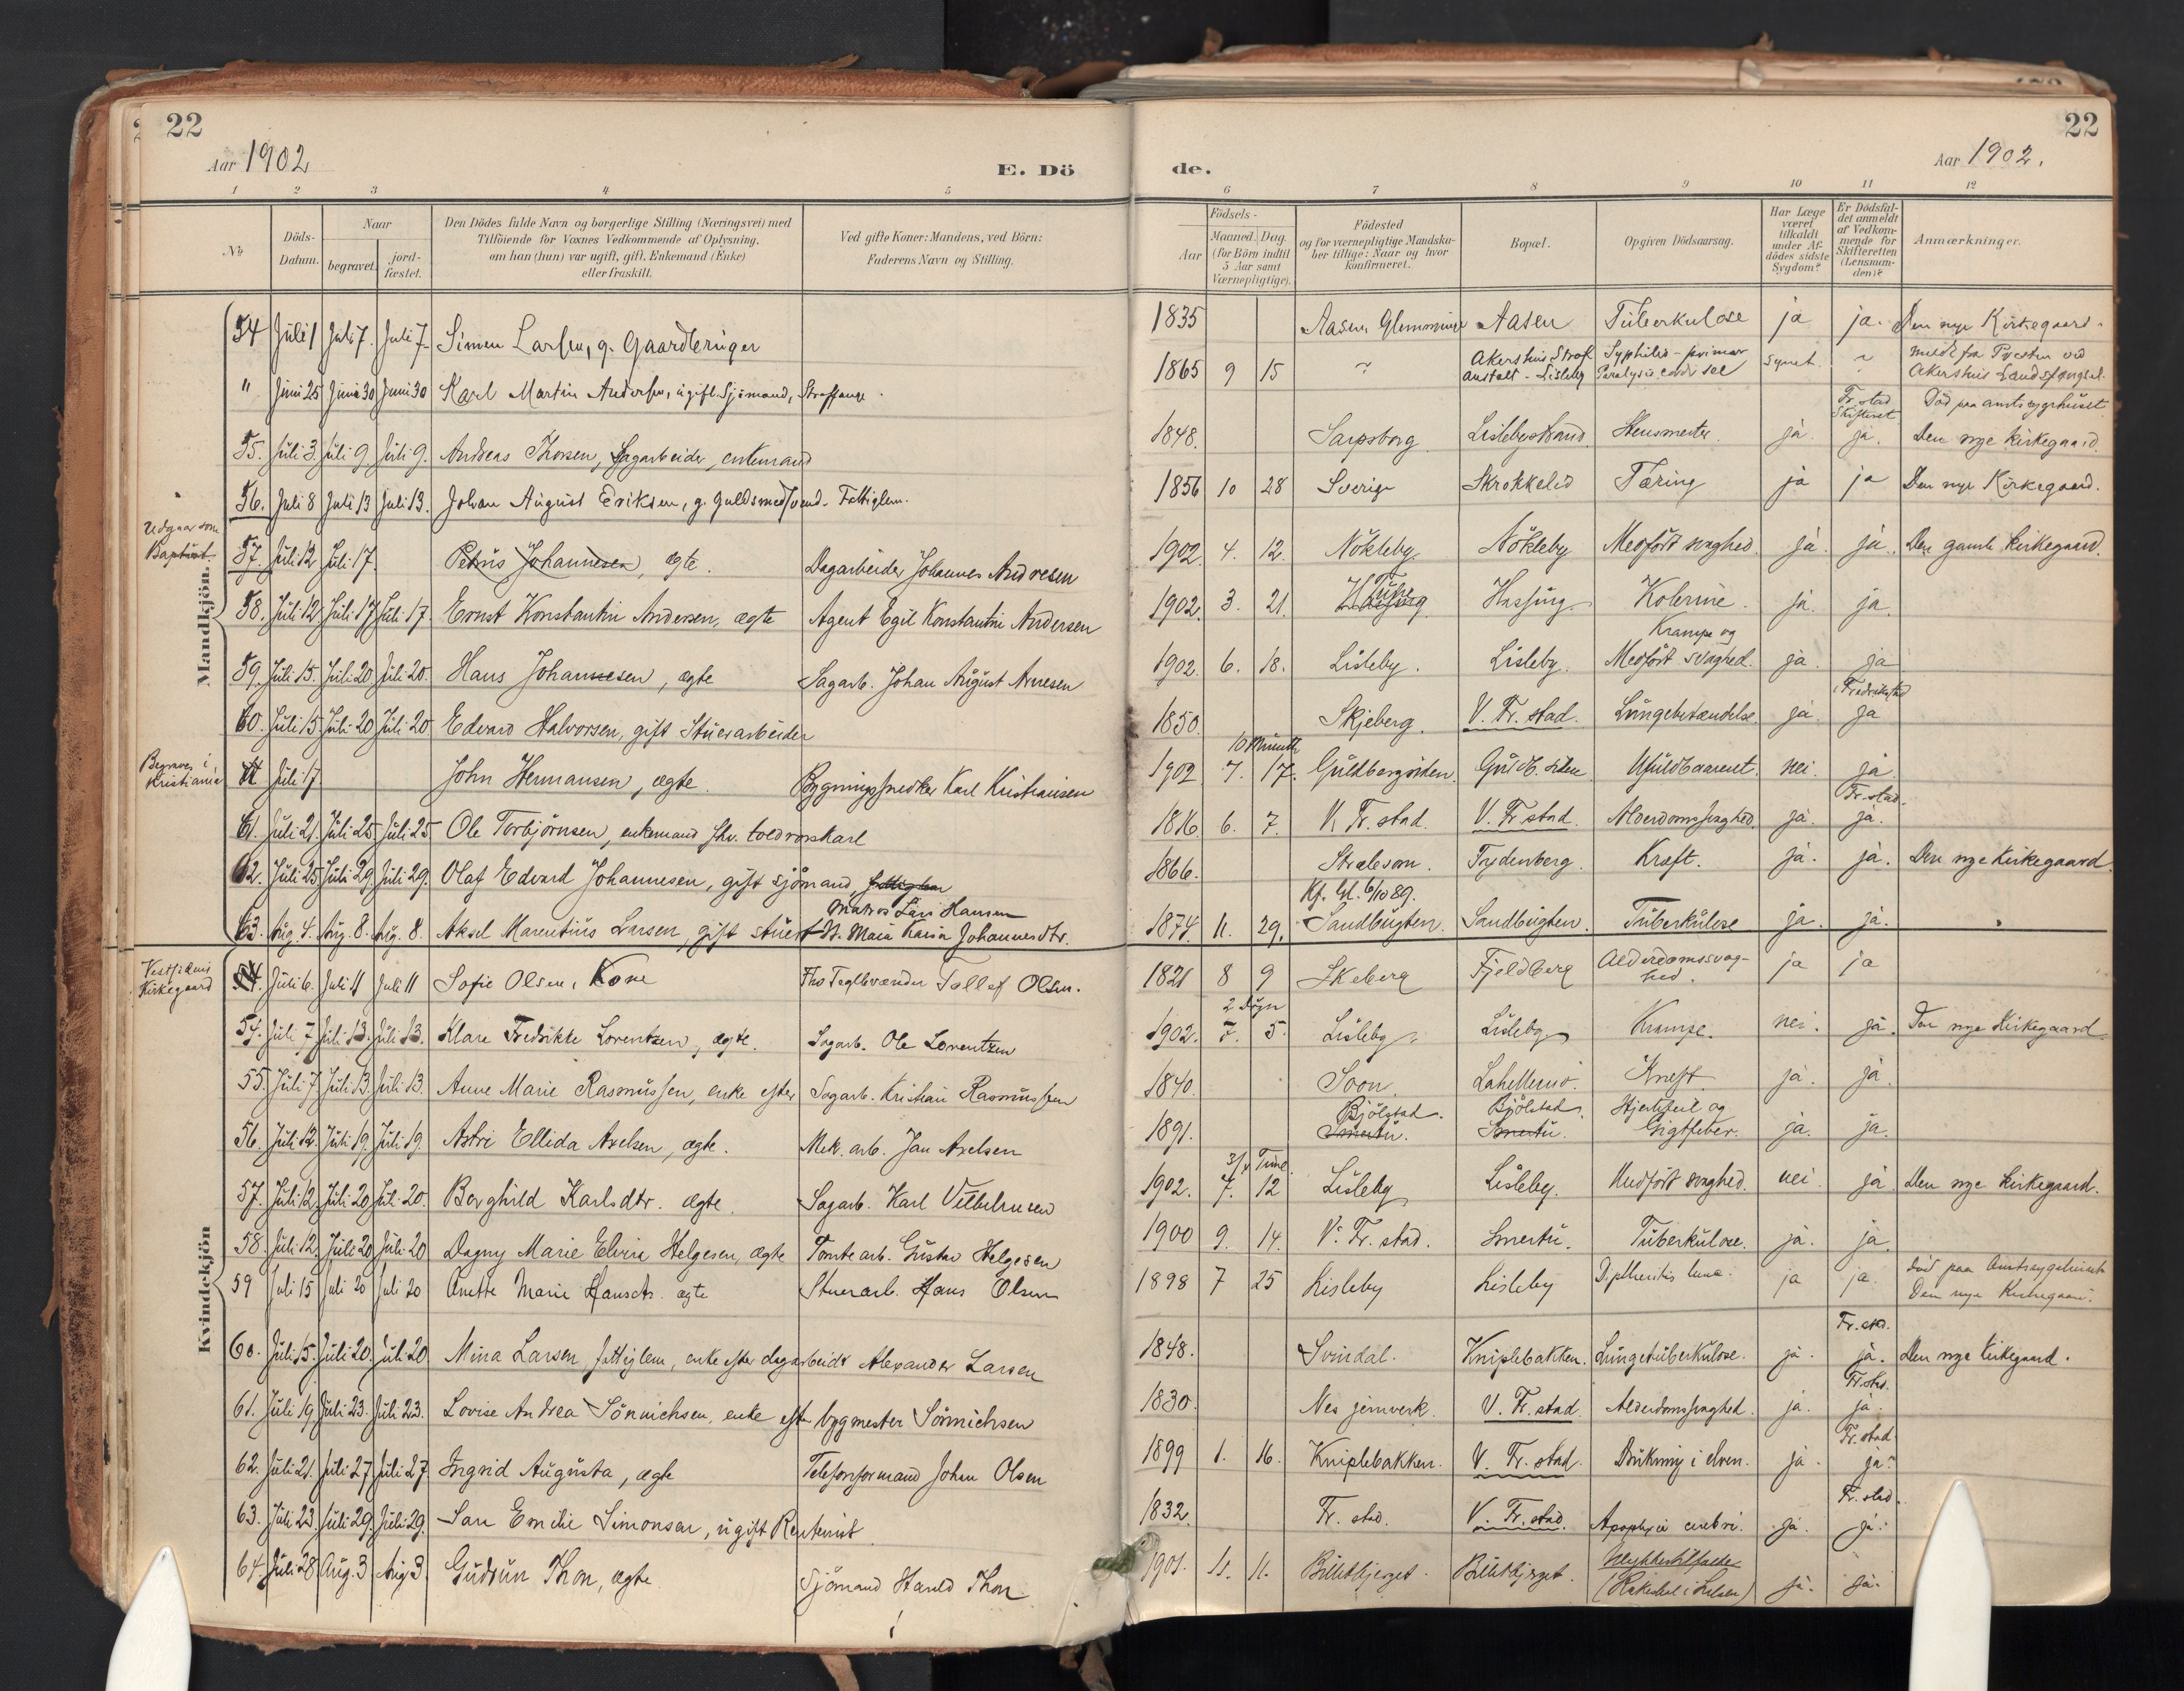 22
22
Aar 1902
E. Dö
de.
Aar 1902.
1 2 3 4 5 6 7 8 9 10 11 12
No
Döds-Datum.
Naar
begravet.
jord-fæstet.
Den Dödes fulde Navn og borgerlige Stilling (Næringsvei) med
Tilföiende for Voxnes Vedkommende af Oplysning,
om han (hun) var ugift, gift, Enkemand (Enke)
eller fraskilt.
Ved gifte Koner: Mandens, ved Börn:
Faderens Navn og Stilling.
Födsels-
Aar
Maaned. Dag.
(for Börn indtil
5 Aar samt
Værnepligtige).
Födested
og for værnepligtige Mandska-
ber tillige: Naar og hvor
konfirmeret.
Bopæl.
Opgiven Dödsaarsag.
Har Læge
været
tilkaldt
under Af-
dödes sidste
Sygdom?
Er Dödsfal-
det anmeldt
af Vedkom-
mende for
Skifteretten
(Lensman-
den)?
Anmærkninger.
Mandkjön.
54 Juli 1 Juli 7. Juli 7. Simen Larsen, g. Gaardbruger 1835 Aasen, Glemminge Aasen Tuberkulose ja ja. Den nye Kirkegaard.
" Juni 25 Juni 30 Juni 30 Karl Martin Andersen, ugift Sjömand, Straffange. 1865 9 15 " Akershus Straf
anstalt - Lisleby Syphilis - primær
Paralysis cordis " Meldt fra Presten ved
Akershus Landsfængsel.
55. Juli 3 Juli 9 Juli 9. Andreas Thorsen, Sagarbeider, enkemand 1848. Sarpsborg Lislebystrand ja. Fr. stad
Skifteret
ja. Död paa amtssygehuset
Den nye kirkegaard.
56. Juli 8 Juli 13 Juli 13. Johan August Eriksen, g. Guldsmedsvend. Fattiglem. 1856 10 28 Sverige Skrokkelid Tæring ja ja Den nye Kirkegaard.
Udgaar som
Baptist
57. Juli 12 Juli 17. Petrus Johannesen, ægte. Dagarbeider Johannes Andresen 1902. 4. 12. Nökleby Nökleby Medfödt svaghed. ja. ja. Den gamle kirkegaard.
58. Juli 12 Juli 17 Juli 17. Ernst Konstantin Andersen, ægte Agent Egil Konstantin Andersen 1902. 3. 21. Tune Hassing. Kolerine. ja. ja.
59. Juli 15. Juli 20 Juli 20. Hans Johannesen, ægte Sagarb. Johan August Arnesen 1902. 6. 18. Lisleby. Lisleby. Krampe og
Medfödt svaghed. ja. ja
60. Juli 15 Juli 20 Juli 20 Edvard Halvorsen, gift Stuerarbeider 1850. Skjeberg. V. Fr. stad. Lungebetændelse. ja. i Fredrikstad
ja
Begraves i
Kristiania
Juli 17 John Hermansen, ægte. Bygningssnedker Karl Kristiansen 10 Minutter
1902 7. 17. Guldbergsiden. Guldb. siden Ufuldbaarent. nei. ja.
61. Juli 21. Juli 25 Juli 25 Ole Torbjörnsen, enkemand fhv. toldrorskarl 1816. 6. 7. V. Fr. stad. V. Fr. stad. Alderdomssvaghed. ja. Fr. stad.
ja.
62. Juli 25 Juli 29 Juli 29. Olaf Edvard Johannesen, gift sjömand, fattiglem 1866. Straleson. Trydenberg. Kræft. ja. ja. Den nye kirkegaard.
63. Aug. 4. Aug. 8. Aug. 8. Aksel Marentius Larsen, gift Matros Lars Hansen
Maia Karin Johannesdtr. 1874. 11. 29. Kf. Gl. 6/10 89.
Sandbugten. Sandbugten. Tuberkulose ja. ja.
Kvindekjön
Vestsidens
Kirkegaard
54. Juli 6. Juli 11 Juli 11 Sofie Olsen, Kone Fhv Teglbrænder Tollef Olsen. 1821 8 9 Skeberg Fjeldberg Alderdomssvag-
hed. ja ja
54. Juli 7 Juli 13. Juli 13. Klara Fredrikke Lorentzen, ægte. Sagarb. Ole Lorentzen 2 Dögn
1902. 7. 5. Lisleby Lisleby Krampe. nei. ja. Den nye Kirkegaard
55. Juli 7 Juli 13 Juli 13. Anne Marie Rasmussen, enke efter Sagarb. Kristian Rasmussen 1840. Soon. Lahellemo. Kræft. ja. ja.
56. Juli 12. Juli 19. Juli 19. Astri Ellida Axelsen, ægte. Mek. arb. Jan Axelsen 1891. Bjölstad.
Smertu. Bjölstad.
Smertu. Hjertefeil og
Gigtfeber. ja. ja.
57. Juli 12 Juli 20 Juli 20. Borghild Karlsdtr. ægte. Sagarb. Karl Vilhelmsen 3/4 Time.
1902. 7. 12 Lisleby Lisleby. Medfödt svaghed. nei. ja Den nye kirkegaard.
58. Juli 12. Juli 20 Juli 20 Dagny Marie Elvira Helgesen, ægte Tomtearb. Gustav Helgesen 1900 9. 14. V. Fr. stad. Smertu. Tuberkulose. ja. ja.
59 Juli 15 Juli 20 Juli 20 Anette Marie Hansdtr. ægte Stuerarb. Hans Olsen 1898 7 25 Lisleby Lisleby Diphtheritis ja ja. död paa Amtssygehuset
Den nye Kirkegaard.
60. Juli 15. Juli 20. Juli 20 Mina Larsen, fattiglem, enke efter dagarbeidr Alexander Larsen 1848. Svindal. Kniplebakken. Lungetuberkulose. ja. Fr. stad.
ja. Den nye kirkegaard.
61. Juli 19 Juli 23. Juli 23. Lovise Andrea Sönnichsen, enke eftr bygmester Sönnichsen 1830. Nes jernverk. V. Fr. stad. Alderdomssvaghed. ja. Fr. stad.
ja.
62. Juli 21. Juli 27 Juli 27 Ingrid Augusta, ægte Telefonformand Johan Olsen 1899 1. 16. Kniplebakken. V. Fr. stad. Drukning i elven. ja. Fr. stad.
ja.
63. Juli 23. Juli 29. Juli 29. Sara Emilie Simonsen, ugift Rentenist 1832. Fr. stad. V. Fr. stad. Apoplexia cerebri. ja. Fr. stad.
ja.
64. Juli 28 Aug. 3 Aug 3. Gudrun Thon, ægte. Sjömand Harald Thon 1901. 11. 11. Ulykkestilfælde ja. ja.